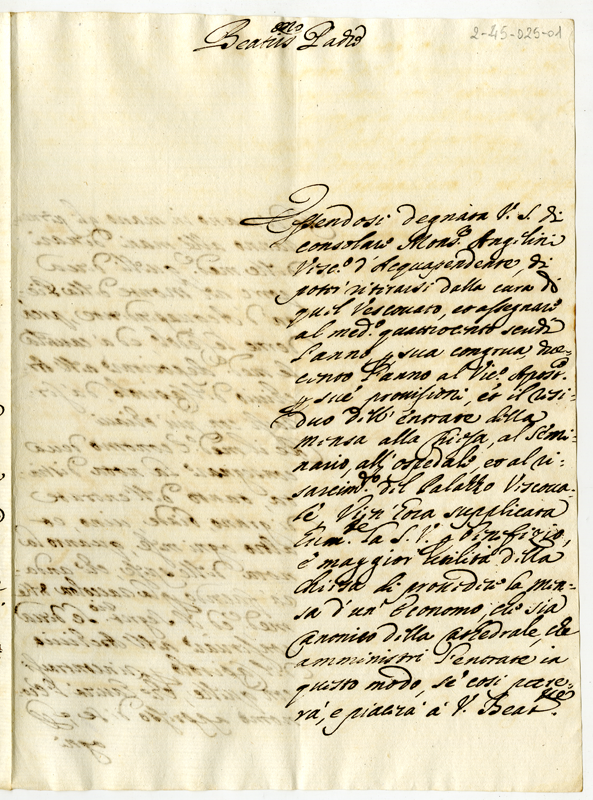 2-45-025-01
Beatis.mo Padre
Essendosi degnata V. S. di
consolare Mons.r Angelini
Vesc.o d'Acquapendente, di
poter ritirarsi dalla cura di
quel Vescovato, et assegnare
al med.o quattrocento scudi
l'anno, p sua congrua, due-
cento l'anno al Vic.o Apost.o
p sue provisioni, et il resi-
duo dell'entrate della
mensa alla Chiesa, al Semi-
nario, all'ospedale, et al ri-
sarcim.to del Palazzo Vescova-
le. Vien'hora supplicata
hum.te la S. V. p benefizio,
e maggior utilità della
chiesa di provedere la men-
sa d'un'Economo, che sia
Canonico della Cathedrale, che
amministri l'entrate in
questo modo, se così parere-
rà, e piacerà à V. Beat.ne